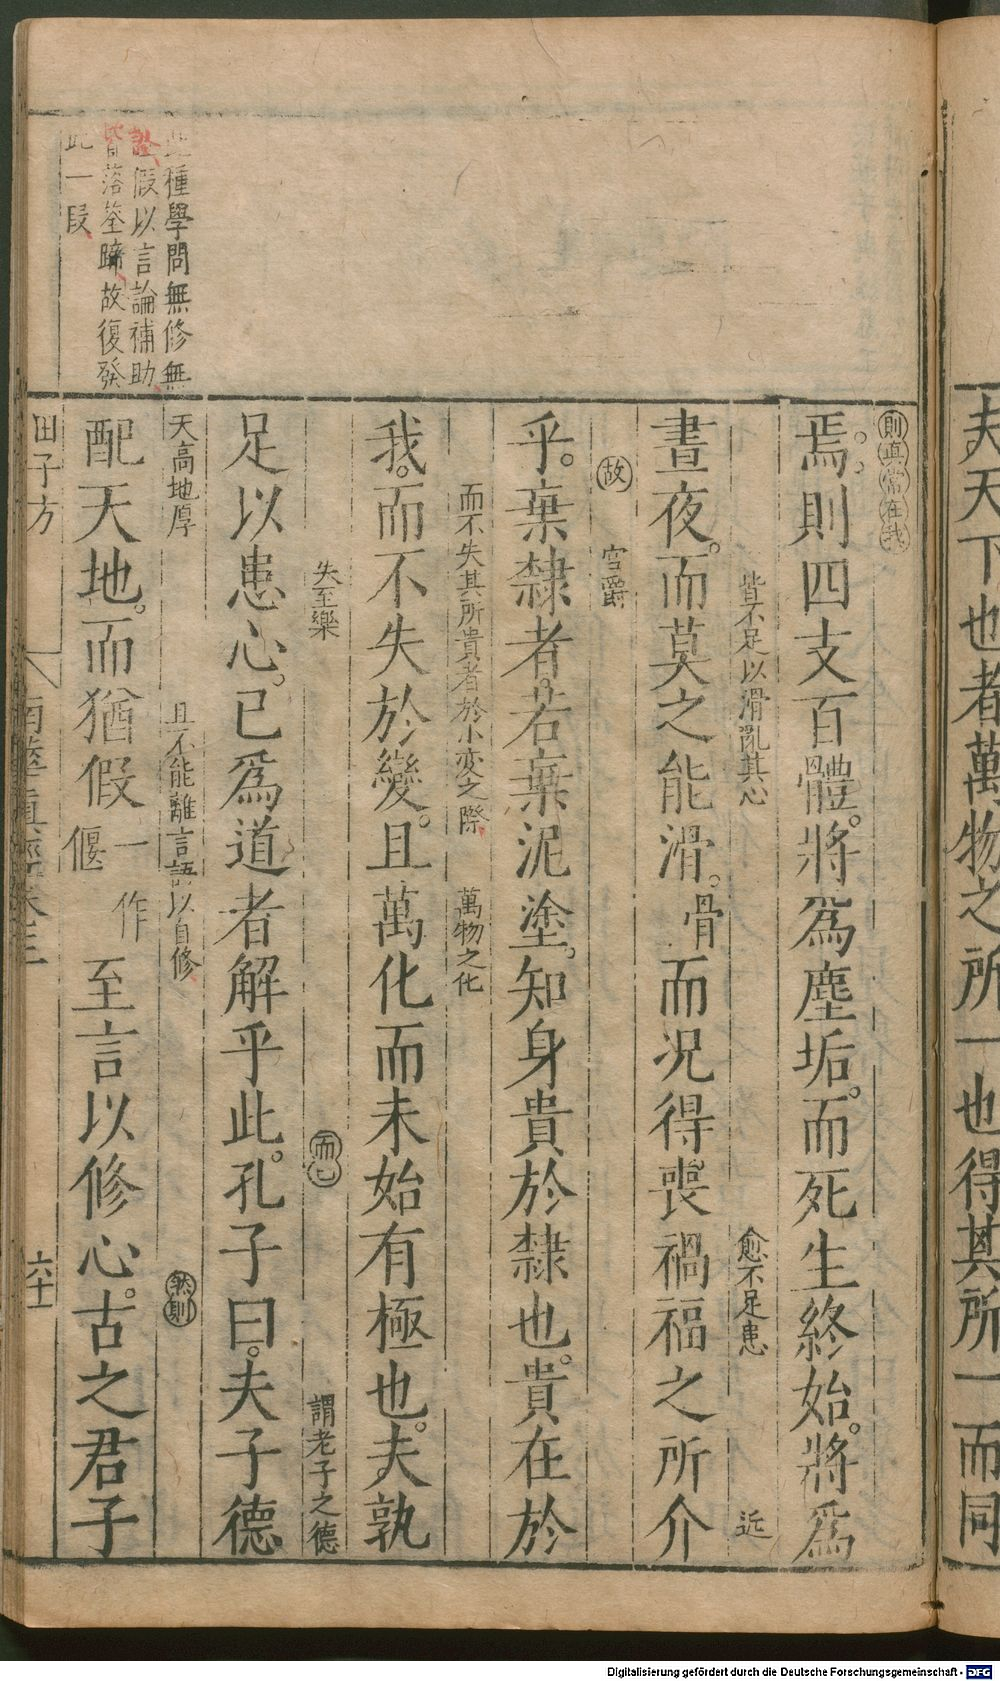 夫天下也者萬物之所一也得其所一而同
則直常在我
焉。則四支百體。將爲塵垢。而死生終始。將爲
皆不足以滑亂其心 愈不足患 近
晝夜。而莫之能滑。骨而況得喪禍福之所介
故 官爵
乎。棄隸者。若棄泥塗。知身貴於隸也。貴在於
而不失其所貴者於小変之際 萬物之化
我。而不失於變。且萬化而未始有極也。夫孰
失至樂 而已 謂老子之德
足以患心。已爲道者解乎此。孔子曰。夫子德
天高地厚 且不能離言語以自修 然則
配天地。而猶假一作偃至言以修心。古之君子
田子方 南華真經卷三 六十一
此種學問無修無
證假以言論補助
皆落筌蹄故復發
此一段
Digitalisierung gefördert durch die Deutsche Forschungsgemeinschaft - DFG